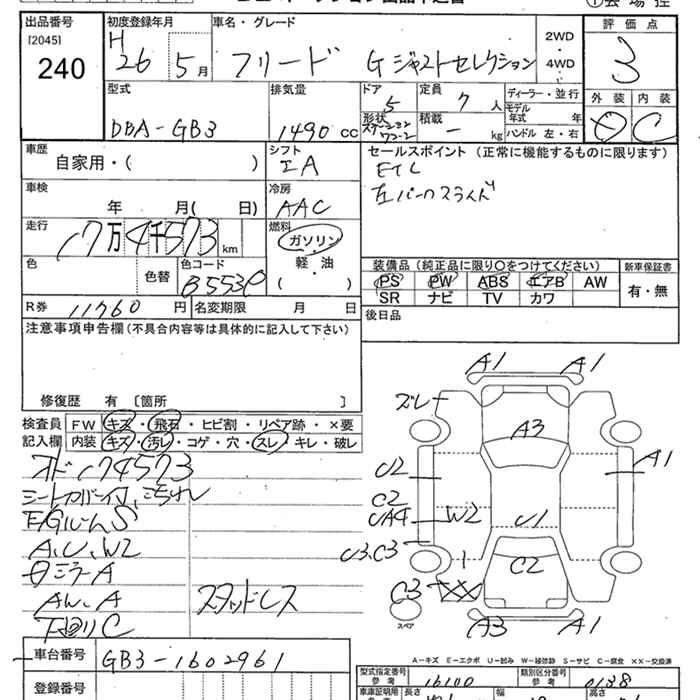 出品番号 初度登録年月 車名・グレード 2WD・4WD 評価点
[2045] H 26 5月 フリード Gジャストセレクション 3
240
型式 排気量 ドア 定員 ディーラー・並行 外装 内装
DBA-GB3 1490 cc 5 7人 モデル年式 年 D C
形状 ステーションワゴン 積載 - kg ハンドル 左・右
車歴 シフト セールスポイント (正常に機能するものに限ります)
自家用・( ) IA ETC
車検 冷房 左パワースライド
年 月( 日) AAC
走行 燃料
17万4千573km ガソリン
色 色替 色コード 軽・油
B553P ( )
装備品 (純正品に限り○をつけてください) 新車保証書
PS PW ABS エアB AW 有・無
SR ナビ TV カワ
R券 11760円 名変期限 月 日 後日品
注意事項申告欄 (不具合内容等は具体的に記入して下さい)
修復歴 有 〔箇所 〕
検査員 FW キズ・飛石・ヒビ割・リペア跡・×要
記入欄 内装 キズ・汚レ・コゲ・穴・スレ・キレ・破レ
オド 174573
E/GルームS
A、U、W2
AW、A スタッドレス
下回りC
A1 A1
ズレー
A3
U2 A1
C2
UA4 W2 U1
U3、C3 C2
C3 XX
スペア A3 A1
車台番号 GB3-1602961
A-キズ E-エクボ U-凹み W-補修跡 S-サビ C-腐食 XX-交換済
登録番号 型式指定番号 参考 16100 類別区分番号 参考 0138
車庫証明用 長さ 幅 高さ